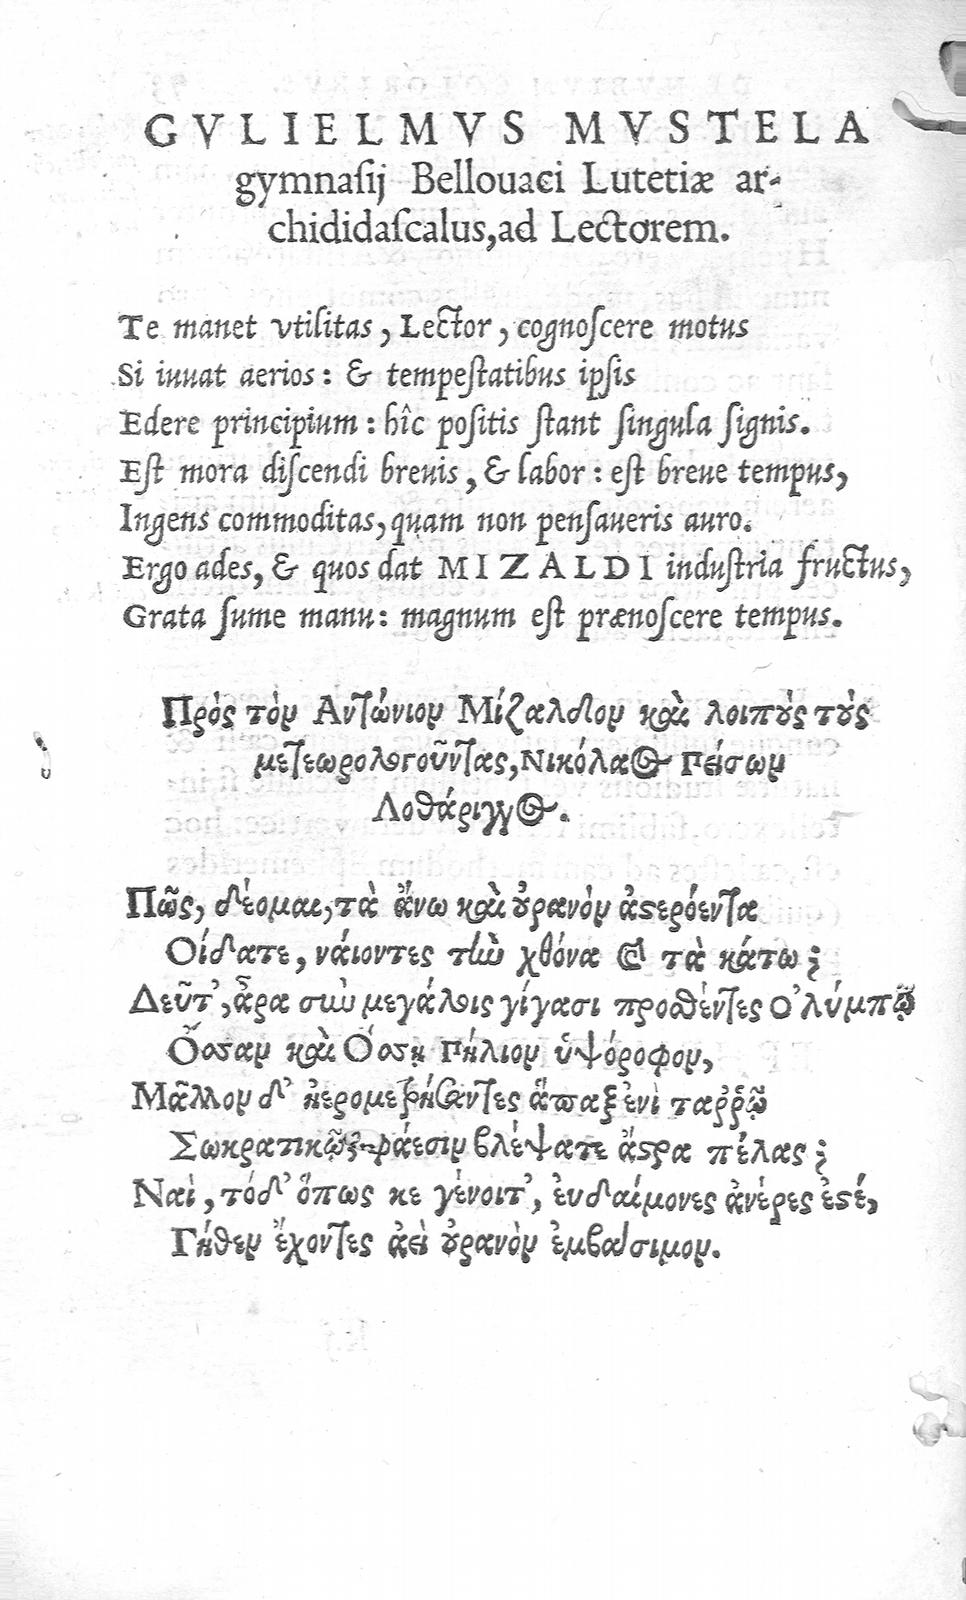 GVLIELMVS MVSTELA
gymnaſij Bellouaci Lutetiæ ar-
chididaſcalus, ad Lectorem.
Te manet vtilitas, Lector, cognoſcere motus
Si iuuat aerios: & tempeſtatibus ipſis
Edere principium: hîc poſitis ſtant ſingula ſignis.
Eſt mora diſcendi breuis, & labor: eſt breue tempus,
Ingens commoditas, quam non penſaueris auro.
Ergo ades, & quos dat MIZALDI induſtria fructus,
Grata ſume manu: magnum eſt prænoſcere tempus.
Πρὸς τὸν Ἀντώνιον Μίζαλδον καὶ λοιποὺς τοὺς
μετεωρολογοῦντας, Νικόλαος Γείσων
Λοθάριγγος.
Πῶς, δέομαι, τὰ ἄνω καὶ οὐρανὸν ἀστερόεντα
Οἴδατε, νάιοντες τὴν χθόνα καὶ τὰ κάτω;
Δεῦτ', ἆρα σὺν μεγάλοις γίγασι προσθέντες Ὀλύμπῳ
Ὄσσαν καὶ Ὄσσῃ Πήλιον ὑψόροφον,
Μᾶλλον δ' ἠερομετρήσαντες ἅπαξ ἐνὶ ταῤῥῷ
Σωκρατικῷ φάεσιν βλέψατε ἄστρα πέλας;
Ναὶ, τόδ' ὅπως κε γένοιτ', ἐυδαίμονες ἀνέρες ἐστέ,
Γῆθεν ἔχοντες ἀεὶ οὐρανὸν ἐμβάσιμον.